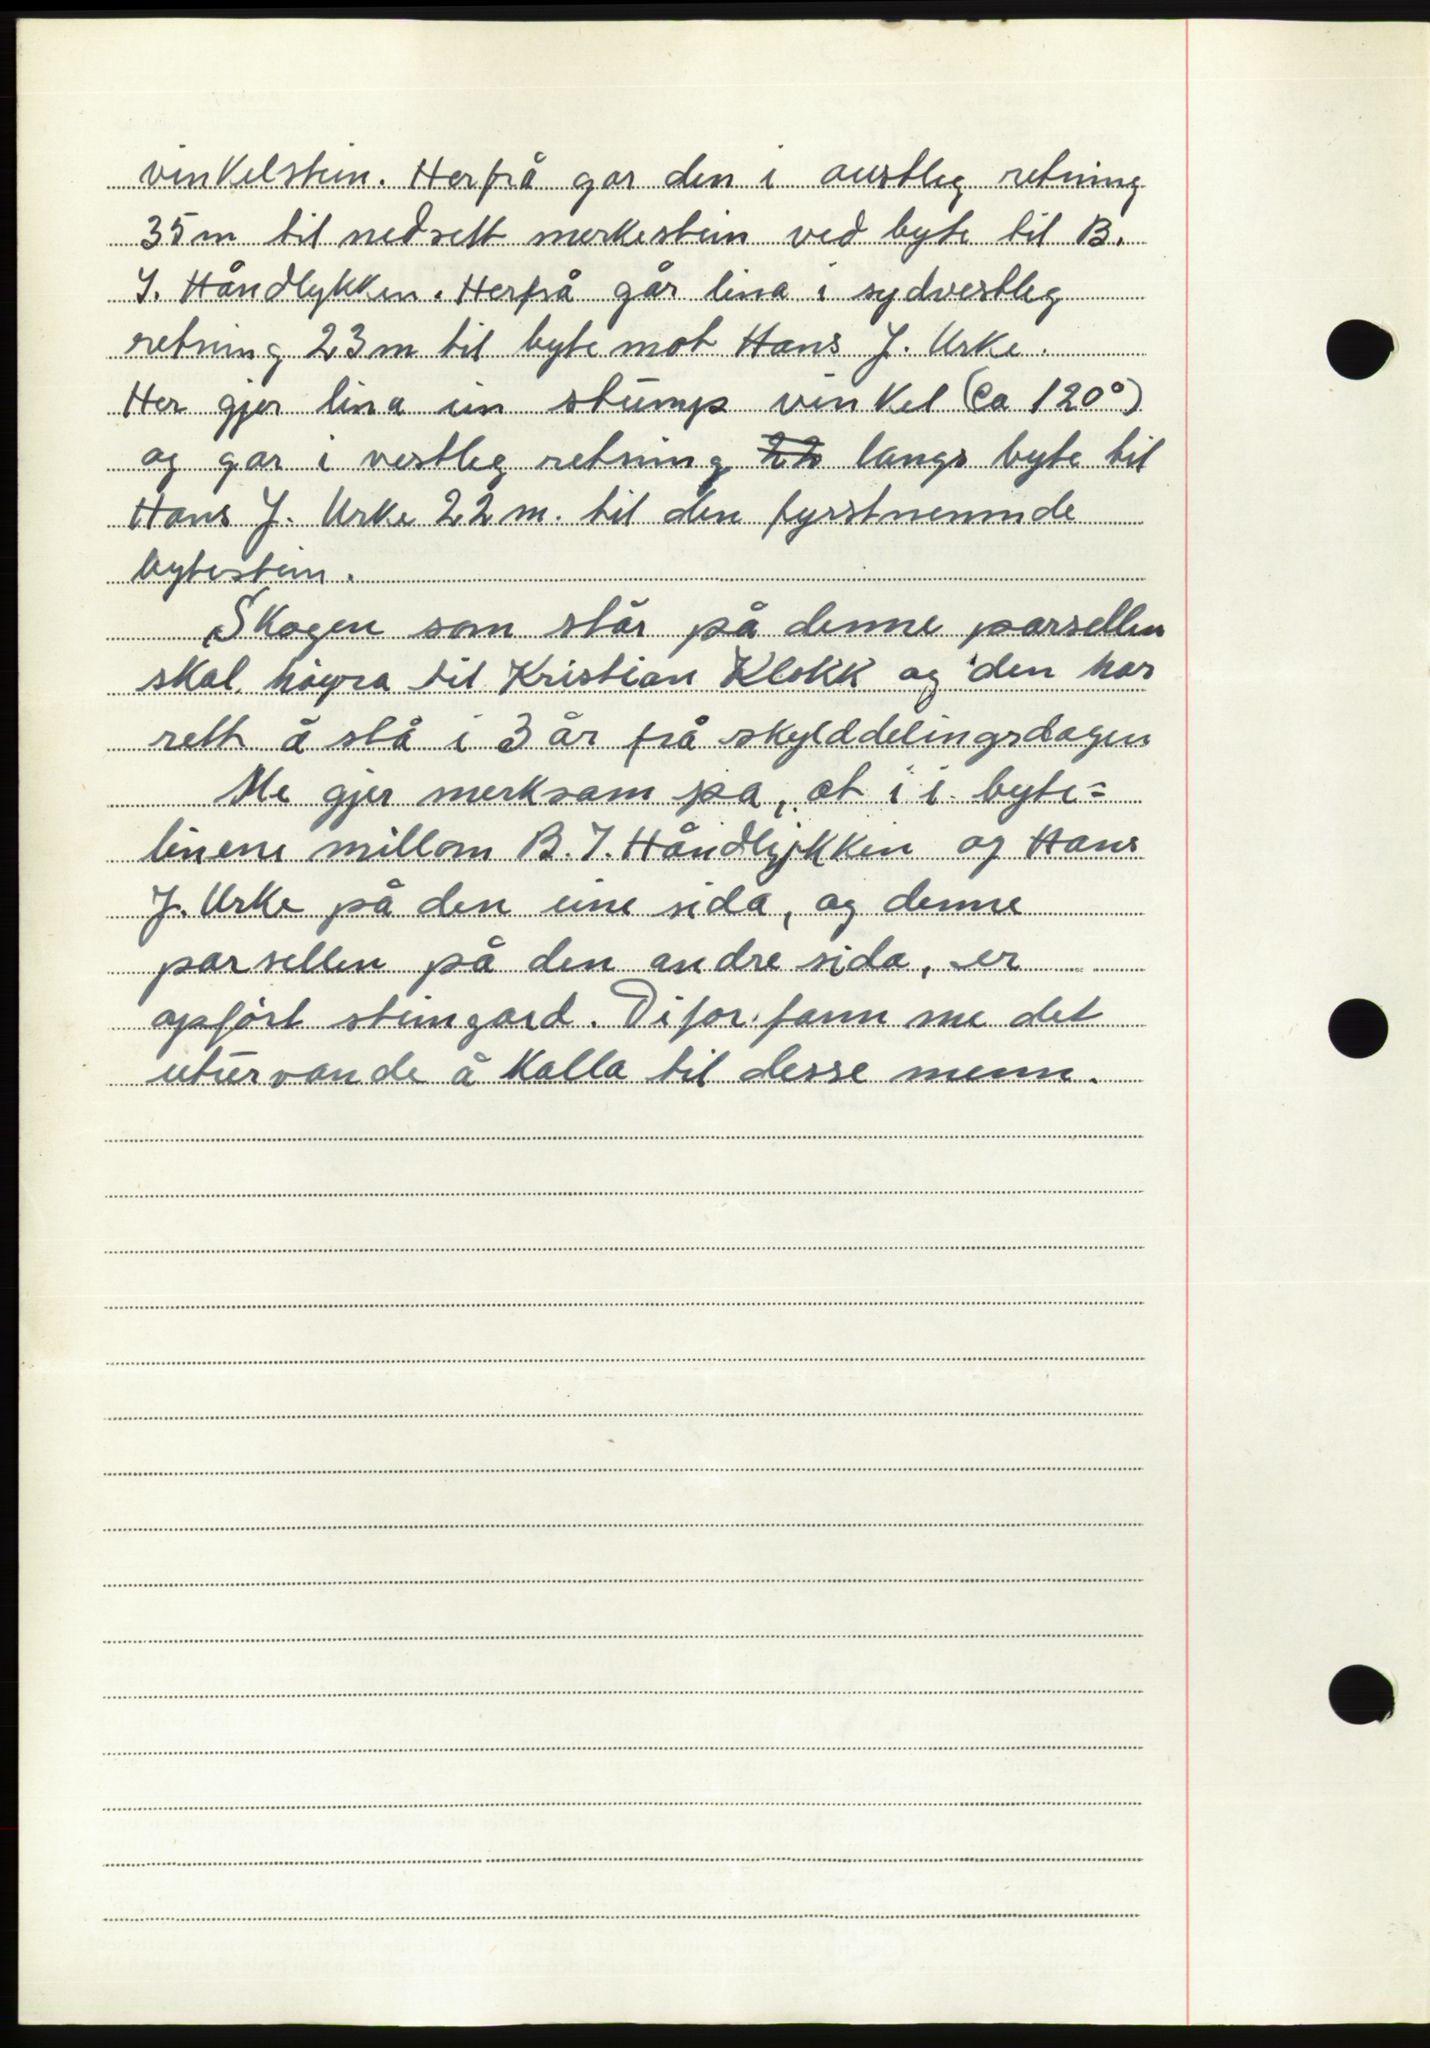 vinkelstein. Herfrå gar den i austleg retning
35m til nedsett merkestein ved byte til B.
I. Håndlykken. Herfrå går lina i sydvestleg
retning 23m til byte mot Hans J. Urke.
Her gjer lina ein stump vinkel (ca 120°)
og gar i vestleg retning 22 langs byte til
Hans J. Urke 22m. til den fyrstnemnde
bytestein.
Skogen som står på denne parsellen
skal høyra til Kristian Klokk og den har
rett å stå i 3 år frå skylddelingsdagen
Me gjer merksam på, at i i byte=
linene millom B. I. Håndlykken og Hans
J. Urke på den eine sida, og denne
parsellen på den andre sida, er
opført steingard. Difor fann me det
uturvande å kalla til desse menn.